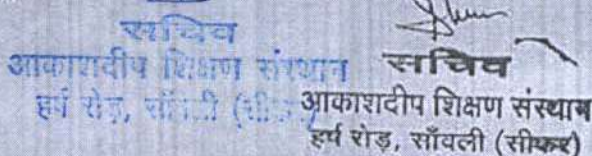 सचिव
आकाशदीप शिक्षण संस्थान
हर्ष रोड़, साँवली (सीकर)
सचिव
आकाशदीप शिक्षण संस्थान
हर्ष रोड़, साँवली (सीकर)